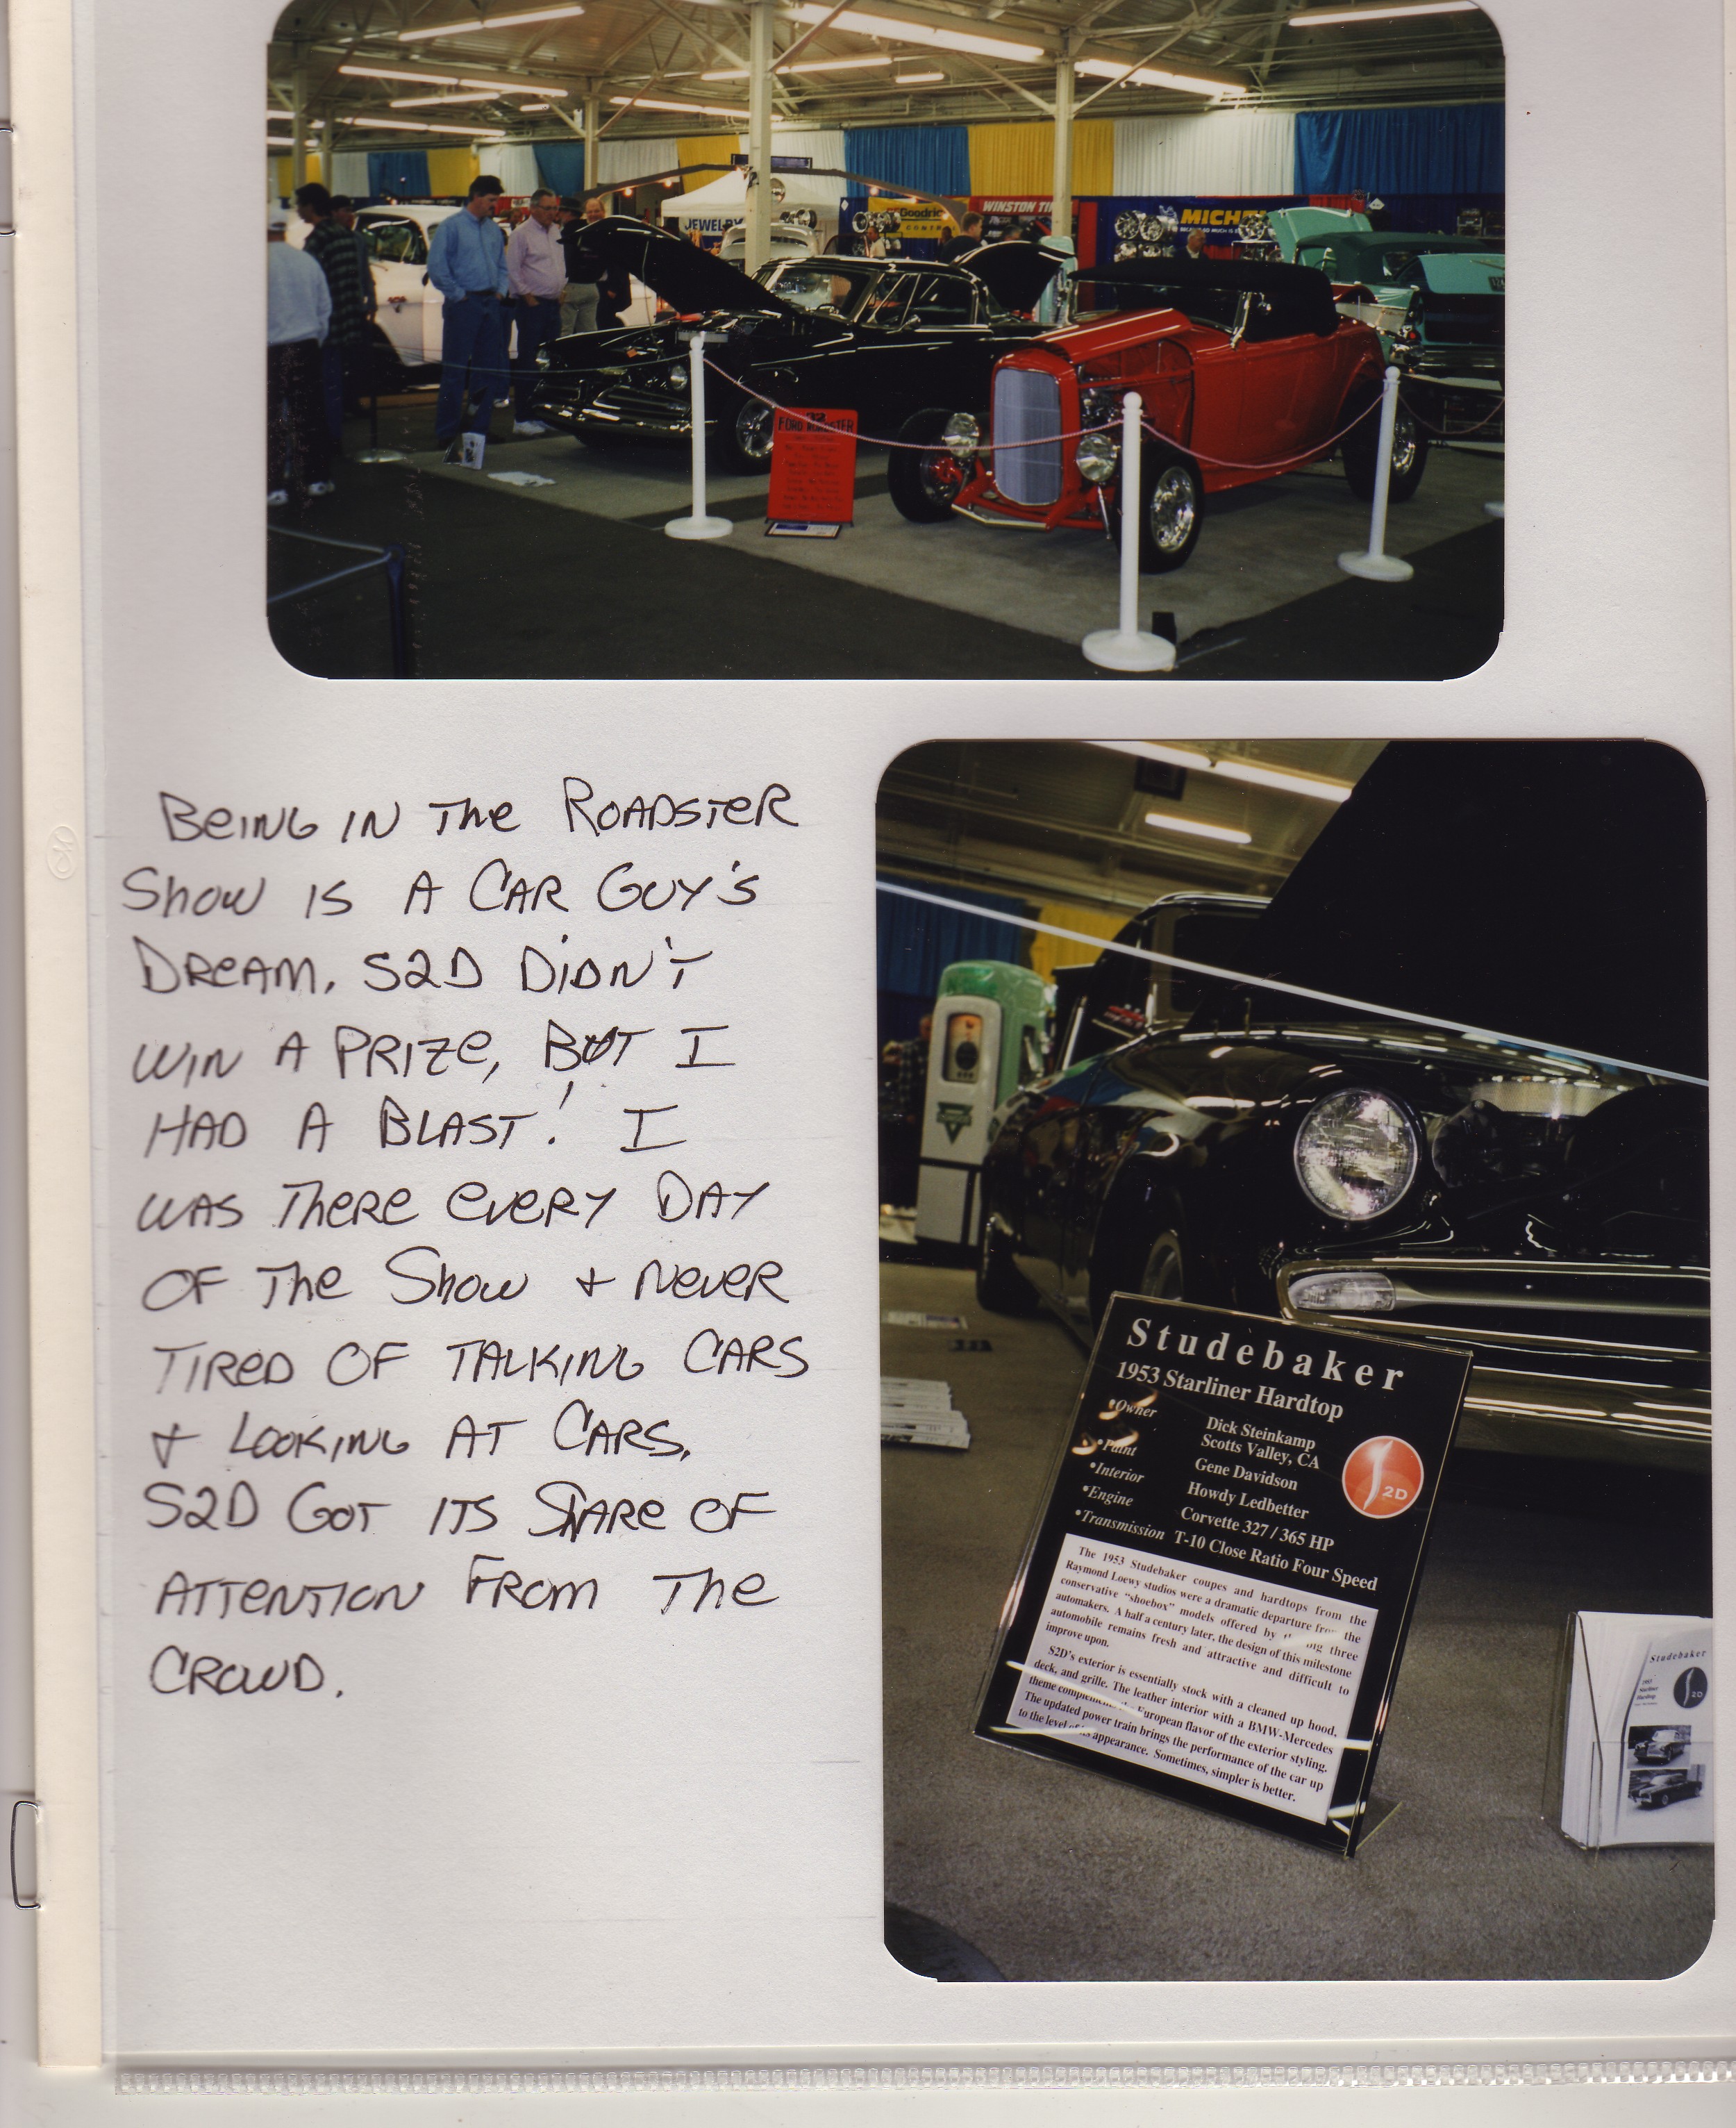 JEWELRY
Goodrich
WINSTON TI
MICH
32
FORD ROADSTER
BEING IN THE ROADSTER
SHOW IS A CAR GUY'S
DREAM. S2D DIDN'T
WIN A PRIZE, BUT I
HAD A BLAST! I
WAS THERE EVERY DAY
OF THE SHOW & NEVER
TIRED OF TALKING CARS
& LOOKING AT CARS.
S2D GOT ITS SHARE OF
ATTENTION FROM THE
CROWD.
Studebaker
1953 Starliner Hardtop
•Owner Dick Steinkamp
Scotts Valley, CA
•Paint Gene Davidson
•Interior Howdy Ledbetter
•Engine Corvette 327 / 365 HP
•Transmission T-10 Close Ratio Four Speed
2D
The 1953 Studebaker coupes and hardtops from the
Raymond Loewy studios were a dramatic departure from the
conservative "shoebox" models offered by three
automakers. A half a century later, the design of this milestone
automobile remains fresh and attractive and difficult to
improve upon.
S2D's exterior is essentially stock with a cleaned up hood,
deck, and grille. The leather interior with a BMW-Mercedes
theme European flavor of the exterior styling.
The updated power train brings the performance of the car up
to the level of its appearance. Sometimes, simpler is better.
Studebaker
1953
Starliner
Hardtop
2D